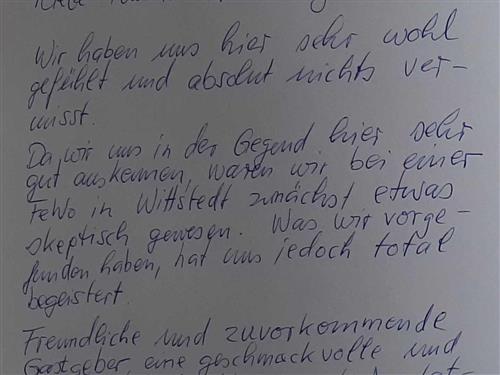 Wir haben uns hier sehr wohl
gefühlt und absolut nichts ver-
misst.
Da wir uns in der Gegend hier sehr
gut auskennen, waren wir bei einer
FeWo in Wittstedt zunächst etwas
skeptisch gewesen. Was wir vorge-
funden haben, hat uns jedoch total
begeistert.
Freundliche und zuvorkommende
Gastgeber, eine geschmackvolle und